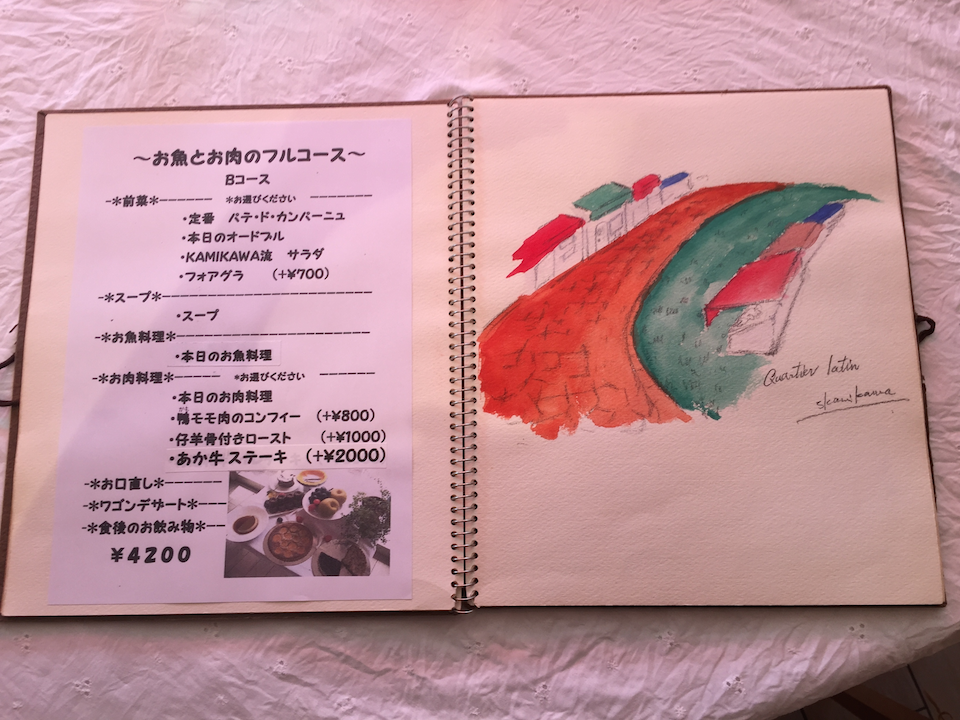 ～お魚とお肉のフルコース～
Bコース
-＊前菜＊------ ＊お選びください -------
・定番 パテ・ド・カンパーニュ
・本日のオードブル
・KAMIKAWA流 サラダ
・フォアグラ (+¥700)
-＊スープ＊-----------------------
・スープ
-＊お魚料理＊---------------------
・本日のお魚料理
-＊お肉料理＊----- ＊お選びください ------
・本日のお肉料理
・鴨モモ肉のコンフィー (+¥800)
・仔羊骨付きロースト (+¥1000)
・あか牛ステーキ (+¥2000)
-＊お口直し＊------
-＊ワゴンデザート＊---
-＊食後のお飲み物＊--
¥4200
Quartier latin
skamikawa